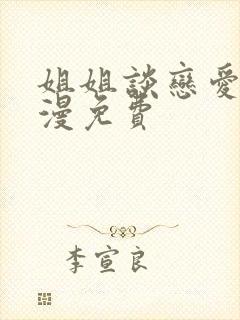 姐姐談戀愛
漫免費
李宣良